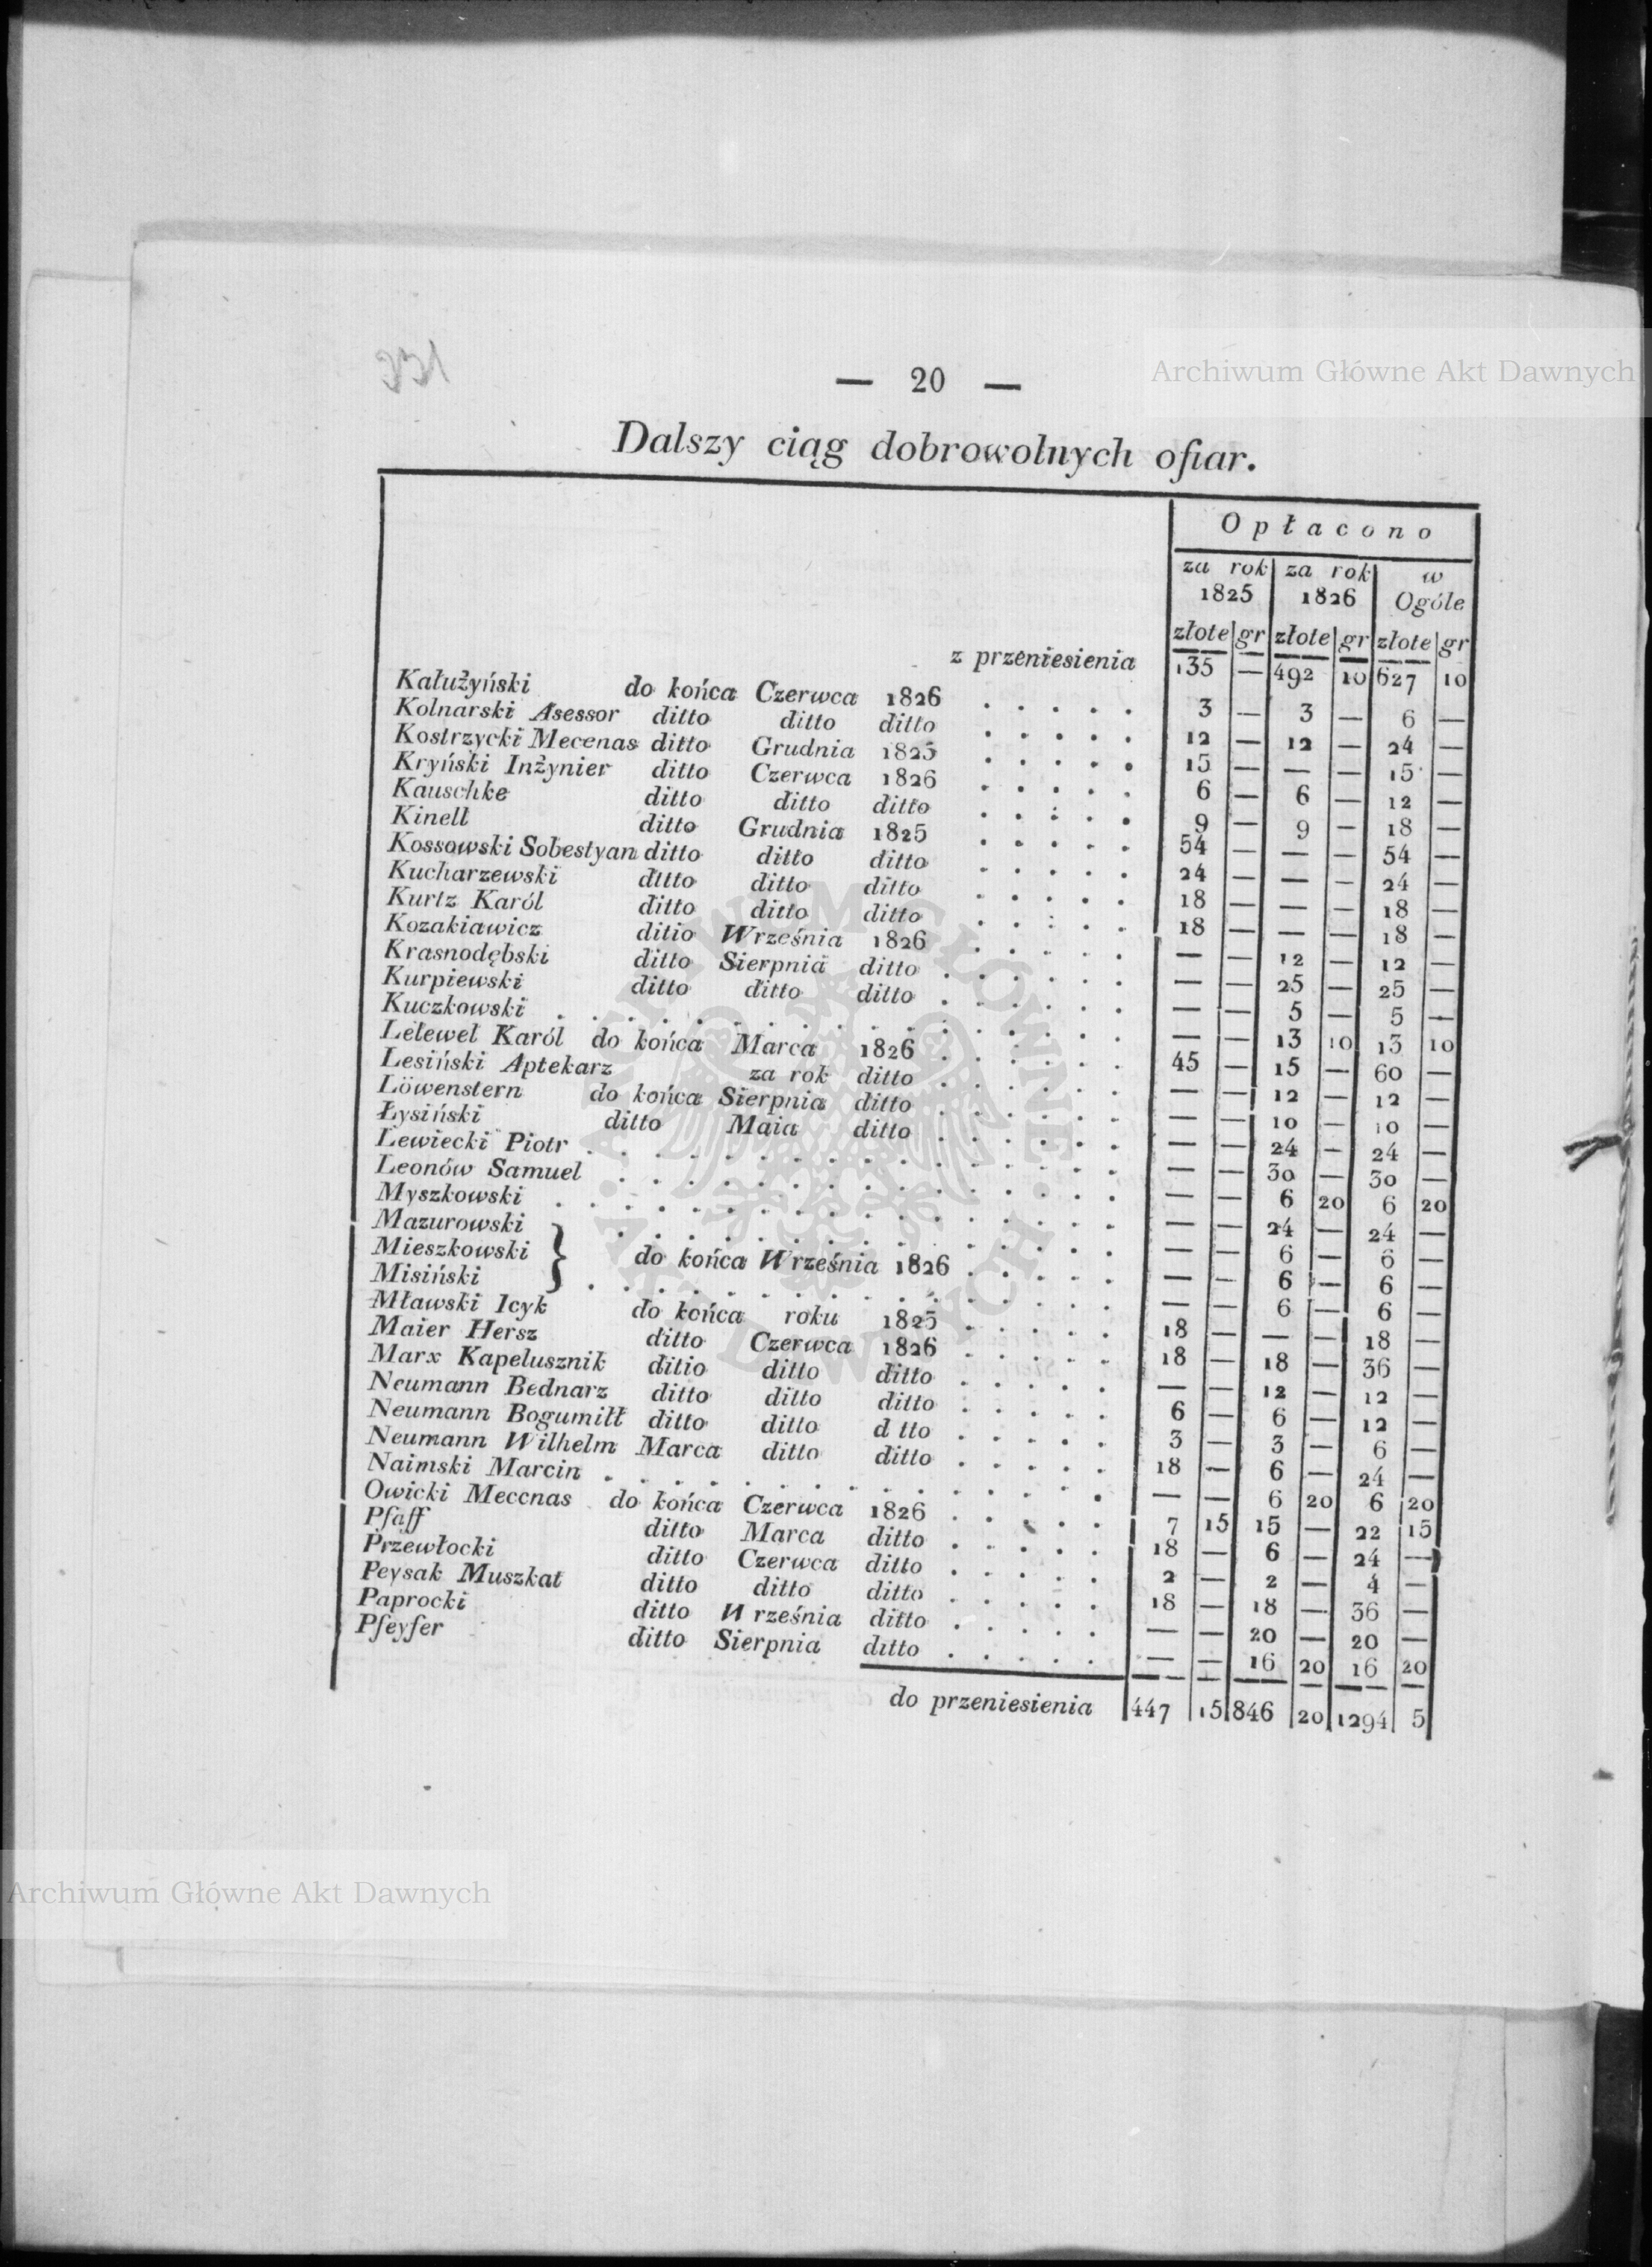 331
— 20 —
Archiwum Główne Akt Dawnych
Dalszy ciąg dobrowolnych ofiar.
Opłacono
za rok 1825 za rok 1826 w Ogóle
złote gr złote gr złote gr
z przeniesienia 135 — 492 10 627 10
Kałużyński do końca Czerwca 1826 . . . . . 3 — 3 — 6 —
Kolnarski Asessor ditto ditto ditto . . . . . 12 — 12 — 24 —
Kostrzycki Mecenas ditto Grudnia 1825 . . . . . 15 — — — 15 —
Kryński Inżynier ditto Czerwca 1826 . . . . . 6 — 6 — 12 —
Kauschke ditto ditto ditto . . . . . 9 — 9 — 18 —
Kinell ditto Grudnia 1825 . . . . . 54 — — — 54 —
Kossowski Sobestyan ditto ditto ditto . . . . . 24 — — — 24 —
Kucharzewski ditto ditto ditto . . . . . 18 — — — 18 —
Kurtz Karól ditto ditto ditto . . . . . 18 — — — 18 —
Kozakiawicz ditio Września 1826 . . . . . — — 12 — 12 —
Krasnodębski ditto Sierpnia ditto . . . . . . — — 25 — 25 —
Kurpiewski ditto ditto ditto . . . . . . — — 5 — 5 —
Kuczkowski . . . . . . . . . . . . . . . . — — 13 10 13 10
Lelewel Karól do końca Marca 1826 . . . . . . 45 — 15 — 60 —
Lesiński Aptekarz za rok ditto . . . . . . — — 12 — 12 —
Löwenstern do końca Sierpnia ditto . . . . . . — — 10 — 10 —
Łysiński ditto Maia ditto . . . . . . — — 24 — 24 —
Lewiecki Piotr . . . . . . . . . . . . . . . — — 30 — 30 —
Leonów Samuel . . . . . . . . . . . . . . — — 6 20 6 20
Myszkowski . . . . . . . . . . . . . . . . — — 24 — 24 —
Mazurowski . . . . . . . . . . . . . . — — 6 — 6 —
Mieszkowski } do końca Września 1826 . . . . . — — 6 — 6 —
Misiński . . . . . . . . . . . . . . . — — 6 — 6 —
Mławski Icyk do końca roku 1825 . . . . . 18 — — — 18 —
Maier Hersz ditto Czerwca 1826 . . . . . 18 — 18 — 36 —
Marx Kapelusznik ditio ditto ditto . . . . . — — 12 — 12 —
Neumann Bednarz ditto ditto ditto . . . . . 6 — 6 — 12 —
Neumann Bogumiłł ditto ditto d tto . . . . . 3 — 3 — 6 —
Neumann Wilhelm Marca ditto ditto . . . . . 18 — 6 — 24 —
Naimski Marcin . . . . . . . . . . . . . . . — — 6 20 6 20
Owicki Mecenas do końca Czerwca 1826 . . . . . 7 15 15 — 22 15
Pfaff ditto Marca ditto . . . . . 18 — 6 — 24 —
Przewłocki ditto Czerwca ditto . . . . . 2 — 2 — 4 —
Peysak Muszkat ditto ditto ditto . . . . . 18 — 18 — 36 —
Paprocki ditto Września ditto . . . . . — — 20 — 20 —
Pfeyfer ditto Sierpnia ditto . . . . . — — 16 20 16 20
do przeniesienia 447 15 846 20 1294 5
ARCHIWUM GŁÓWNE · AKT DAWNYCH ·
Archiwum Główne Akt Dawnych